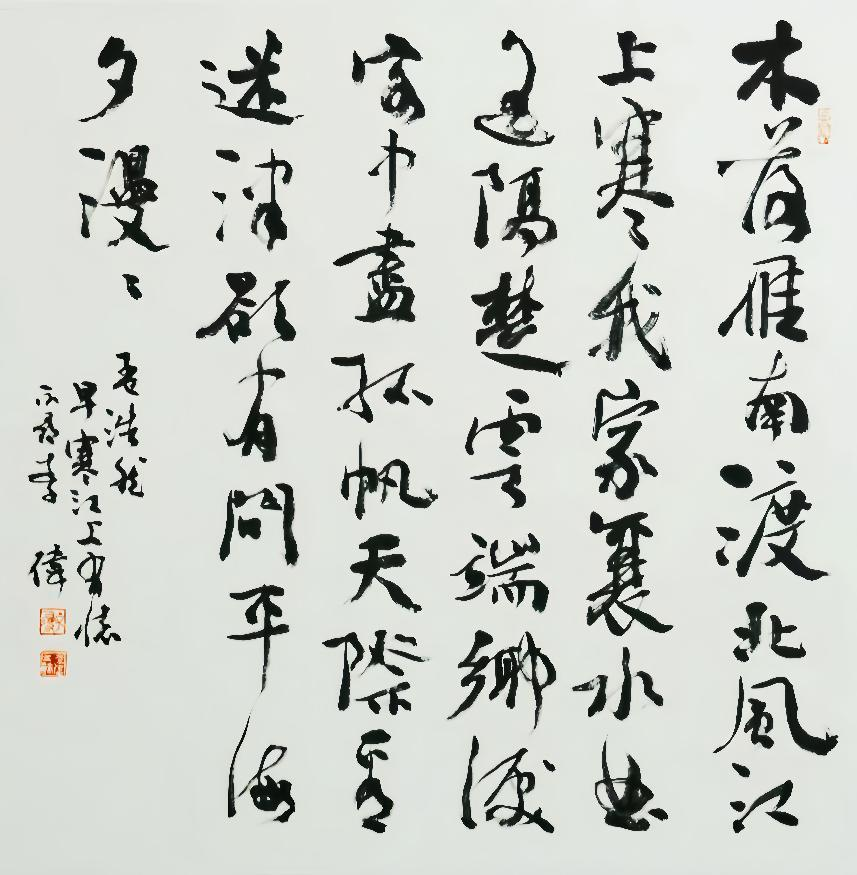 木落雁南渡北風江
上寒我家襄水曲
遙隔楚雲端鄉淚
客中盡孤帆天際看
迷津欲有問平海
夕漫〻
孟浩然
早寒江上有懷
李偉